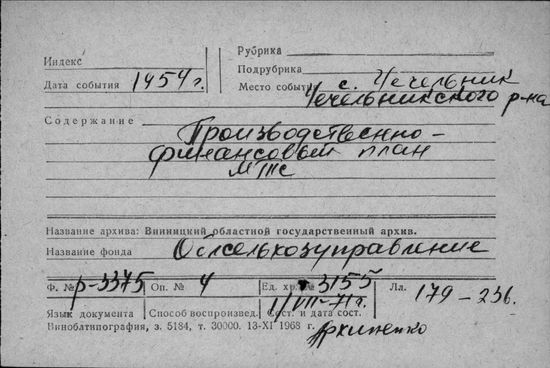 Индекс
Рубрика
Подрубрика
Дата события 1954 г.
Место события с. Чечельник
Чечельникского р-на
Содержание Производственно-
финансовый план
МТС
Название архива: Винницкий областной государственный архив.
Название фонда Облсельхозуправление
Ф. № р-3375 Оп. № 4 Ед. хр. № 3155 Лл. 179-236.
Язык документа Способ воспроизвед. Сост. и дата сост. 1/VII-71 г.
Архипенко
Виноблтипография, з. 5184, т. 30000. 13-XI 1968 г.